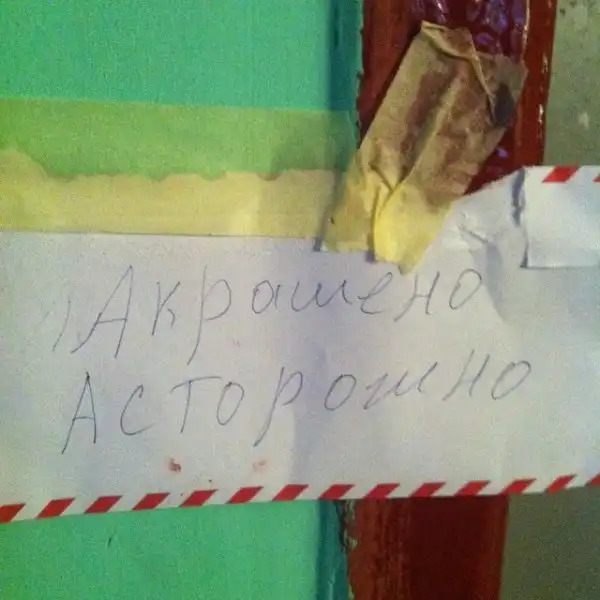 Акрашено
Асторожно